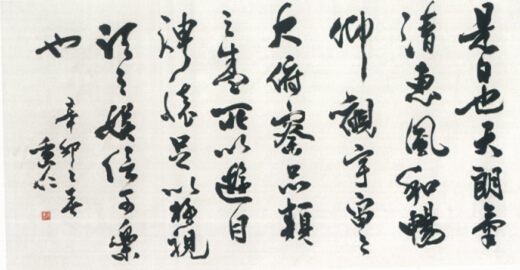 是日也天朗氣
清惠風和暢
仰觀宇宙之
大俯察品類
之盛所以遊目
騁懷足以極視
聽之娛信可樂
也
辛卯之春